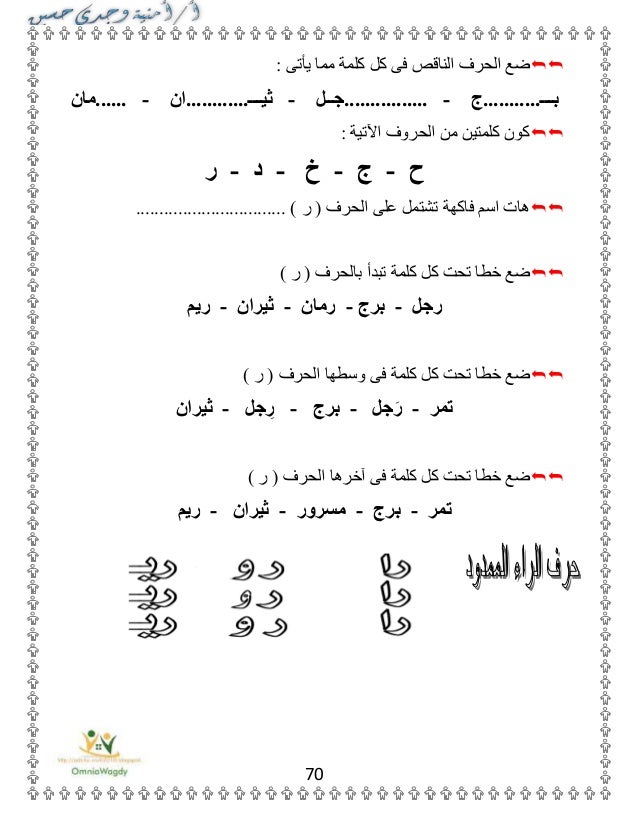 أ/ أمنية وجدى حسين
ضع الحرف الناقص فى كل كلمة مما يأتى :
بـــ...........ج - ................جــل - ثيـــ............ان - ......مان
كون كلمتين من الحروف الآتية :
ح - ج - خ - د - ر
هات اسم فاكهة تشتمل على الحرف ( ر ) ................................
ضع خطا تحت كل كلمة تبدأ بالحرف ( ر )
رجل - برج - رمان - ثيران - ريم
ضع خطا تحت كل كلمة فى وسطها الحرف ( ر )
تمر - رَجل - برج - رِجل - ثيران
ضع خطا تحت كل كلمة فى آخرها الحرف ( ر )
تمر - برج - مسرور - ثيران - ريم
حرف الراء الممدود
را رو ريـ
را رو ريـ
را رو ريـ
OmniaWagdy
70